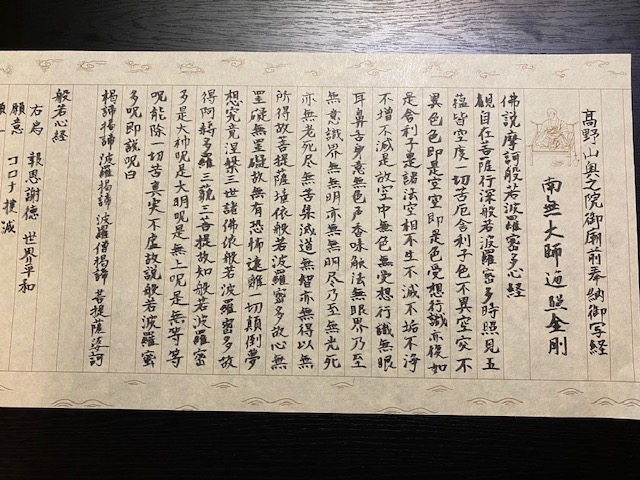 高野山奥之院御廟前奉納御写経
南無大師遍照金剛
佛説摩訶般若波羅蜜多心経
観自在菩薩行深般若波羅蜜多時照見五
蘊皆空度一切苦厄舎利子色不異空空不
異色色即是空空即是色受想行識亦復如
是舎利子是諸法空相不生不滅不垢不浄
不増不減是故空中無色無受想行識無眼
耳鼻舌身意無色声香味触法無眼界乃至
無意識界無無明亦無無明尽乃至無老死
亦無老死尽無苦集滅道無智亦無得以無
所得故菩提薩埵依般若波羅蜜多故心無
罣礙無罣礙故無有恐怖遠離一切顛倒夢
想究竟涅槃三世諸佛依般若波羅蜜多故
得阿耨多羅三藐三菩提故知般若波羅蜜
多是大神呪是大明呪是無上呪是無等等
呪能除一切苦真実不虚故説般若波羅蜜
多呪即説呪曰
羯諦羯諦波羅羯諦波羅僧羯諦菩提薩婆訶
般若心経
右為 報恩謝徳 世界平和
願意 コロナ撲滅